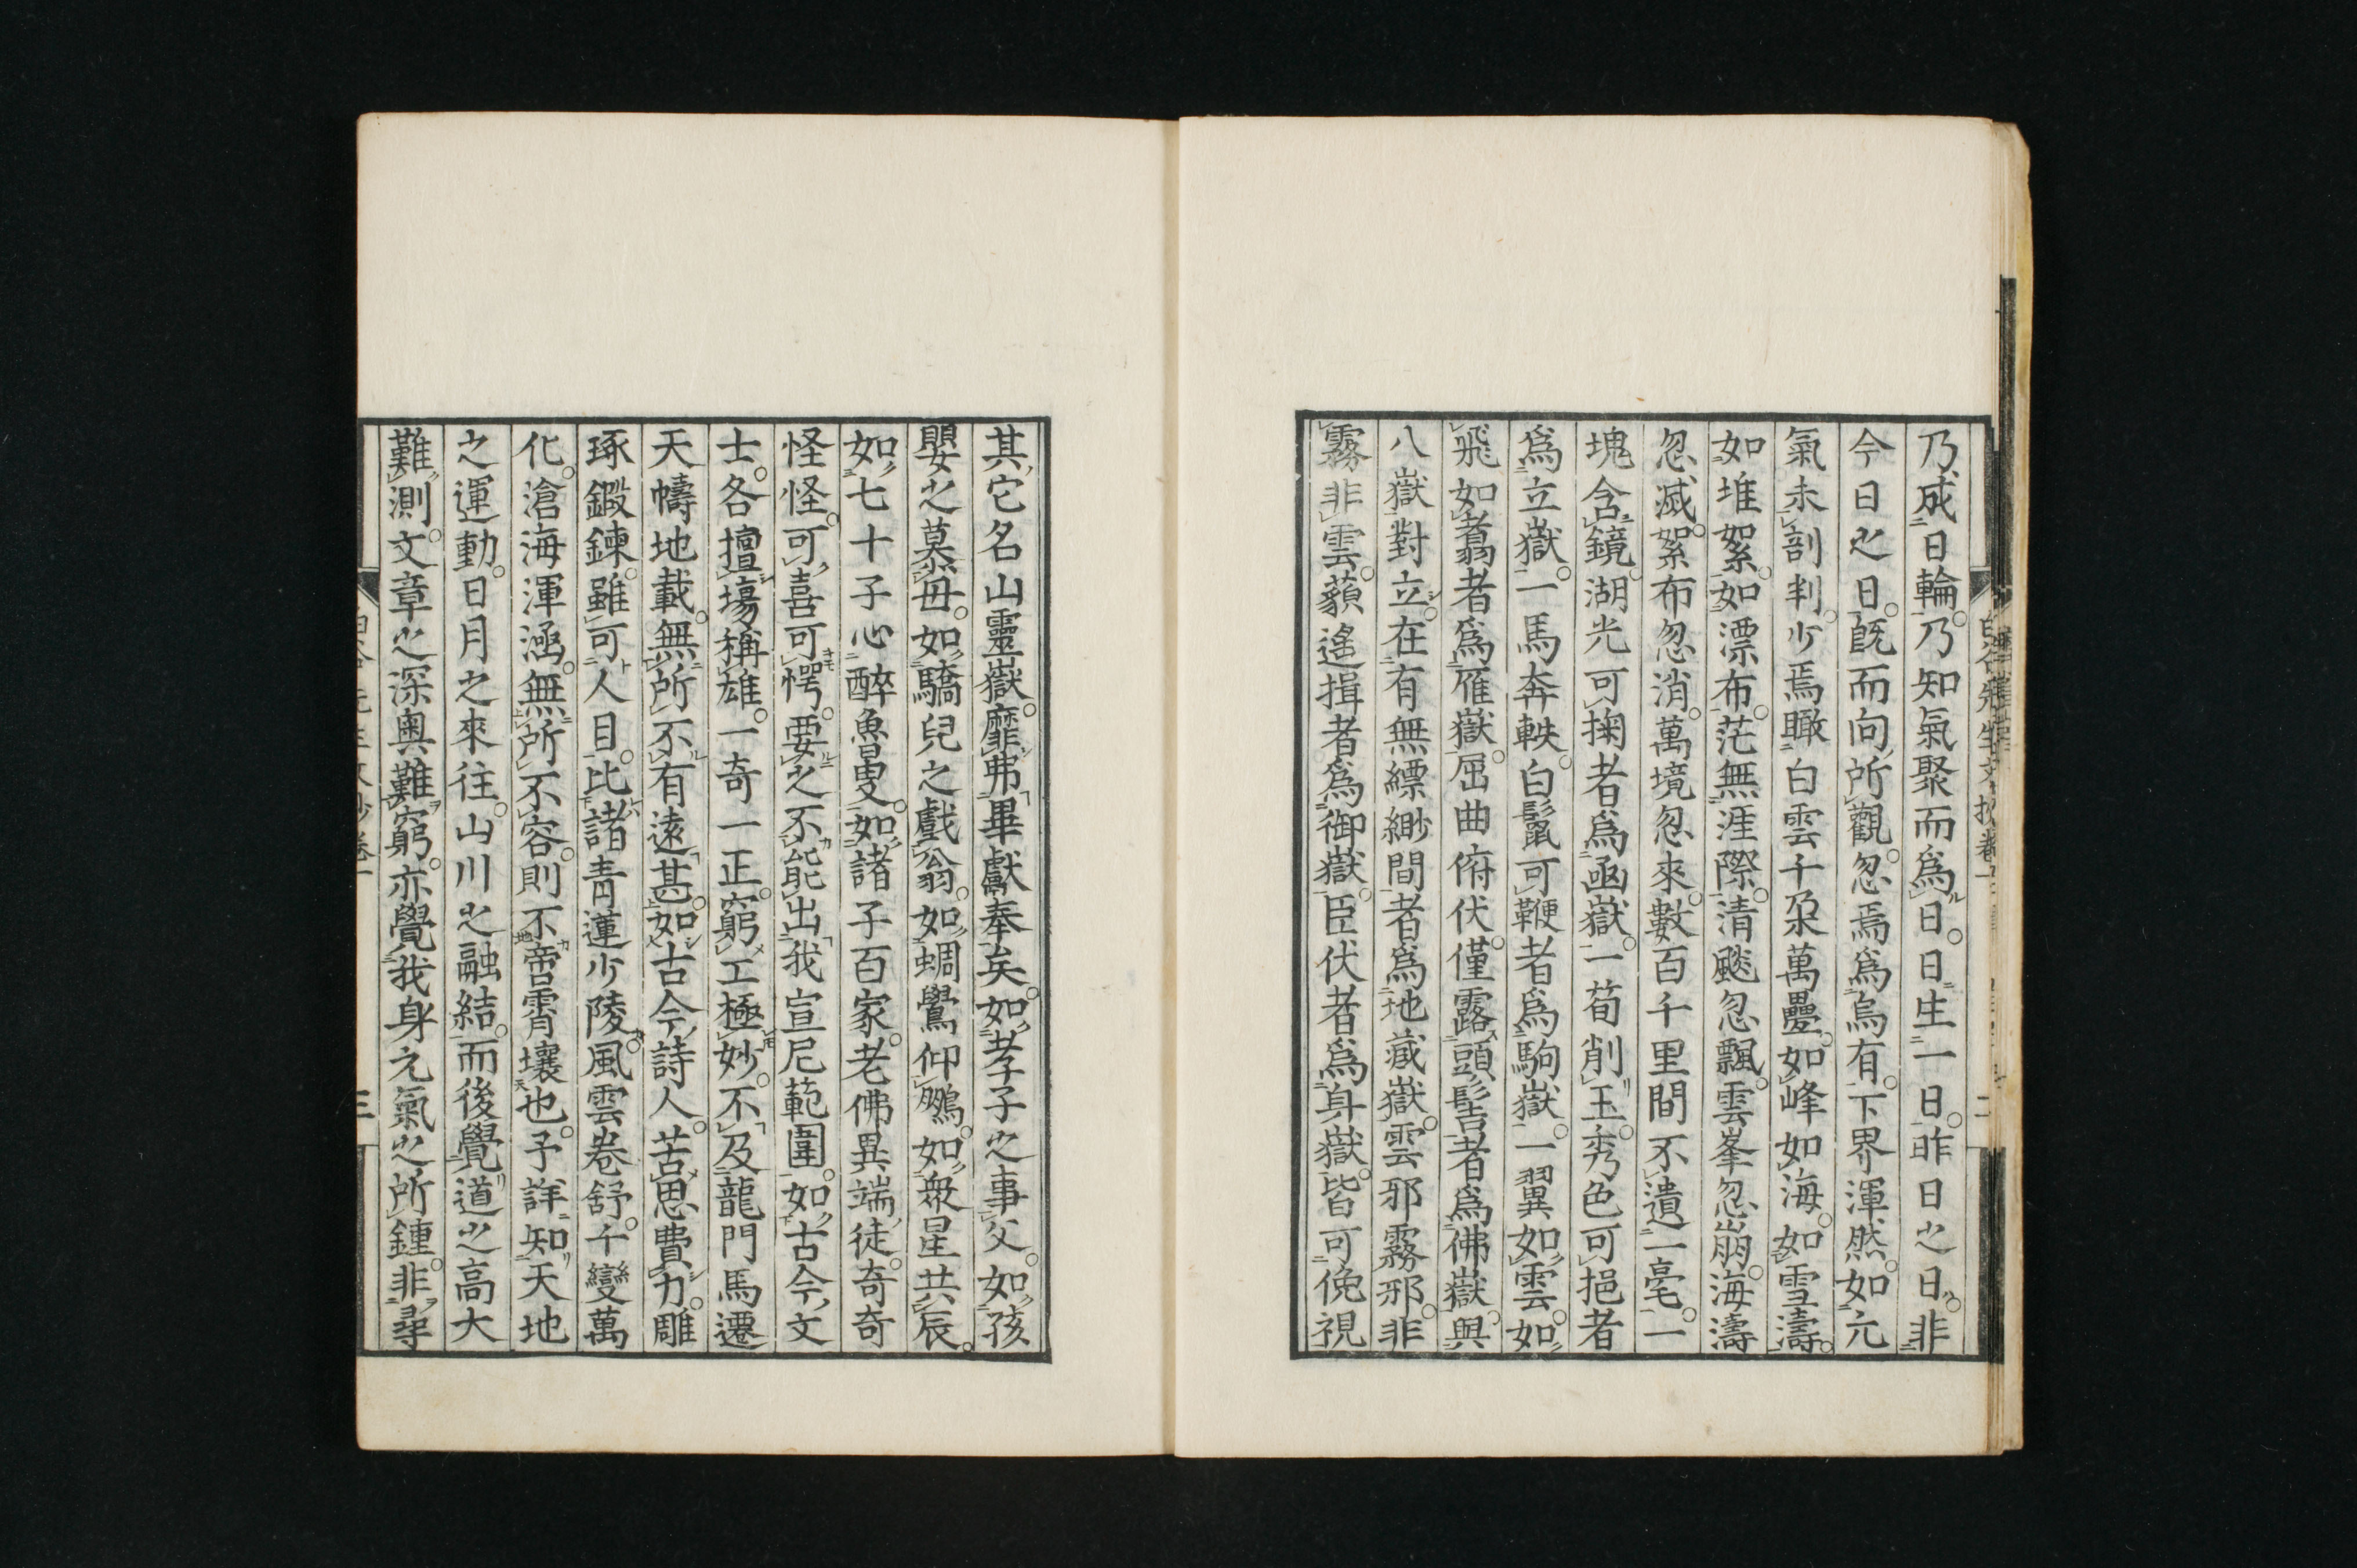 乃成日輪。乃知氣聚而爲日。日生一日。昨日之日。非
今日之日。既而向所觀。忽焉爲烏有。下界渾然。如元
氣未剖判。少焉瞰白雲千朶萬疊。如峰如海。如雪濤。
如堆絮。如漂布。茫無涯際。清飈忽飄。雲峯忽崩。海濤
忽滅。絮布忽消。萬境忽來。數百千里間不遺一毫。一
塊含鏡。湖光可掬者爲凾嶽。一荀削玉。秀色可挹者
爲立嶽。一馬奔軼。白鬣可鞭者爲駒嶽。一翼如雲。如
飛如翥者爲雁嶽。屈曲俯伏。僅露頭髻者爲佛嶽。與
八嶽對立。在有無縹緲間者爲地藏嶽。雲邪霧邪。非
霧非雲。藐遙揖者爲御嶽。臣伏者爲身嶽。皆可俛視
其它名山靈嶽。靡弗畢獻奉矣。如孝子之事父。如孩
嬰之慕母。如驕兒之戲翁。如蜩鷽仰鵬。如衆星共辰。
如七十子心醉魯叟。如諸子百家。老佛異端徒。奇奇
怪怪。可喜可愕。要之不能出我宣尼範圍。如古今文
士。各擅塲稱雄。一奇一正。窮工極妙。不及龍門馬遷
天幬地載。無所不有遠甚。如古今詩人。苦思費力。雕
琢鍛鍊。雖可人目。比諸青蓮少陵。風雲卷舒。千變萬
化。滄海渾涵。無所不容。則不啻霄壤也。予詳知天地
之運動。日月之來往。山川之融結。而後覺道之高大
難測。文章之深奧難窮。亦覺我身元氣之所鍾。非尋